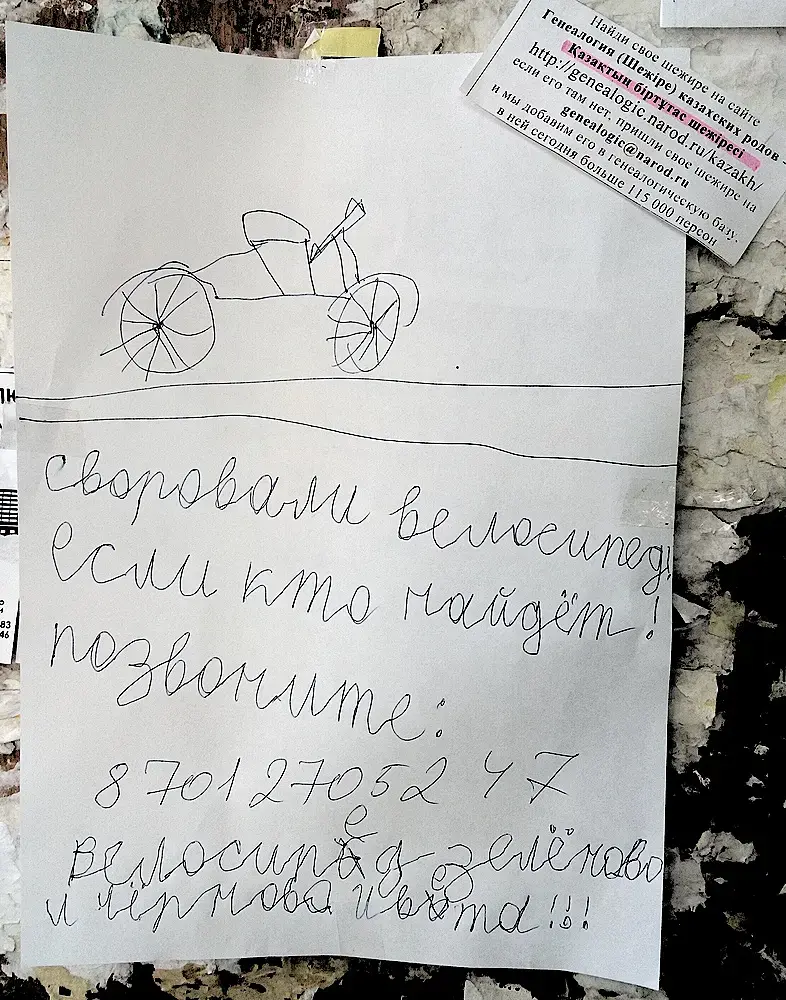 Найди свое шежире на сайте
Генеалогия (Шежіре) казахских родов -
Қазақтың біртұтас шежіресі
http://genealogic.narod.ru/kazakh/
если его там нет, пришли свое шежире на
genealogic@narod.ru
и мы добавим его в генеалогическую базу.
в ней сегодня больше 115 000 персон
своровали велосипед!
если кто найдёт!
позвоните:
87012705247
велосипед зелёново
и чёрнова цвета!!!
83
46